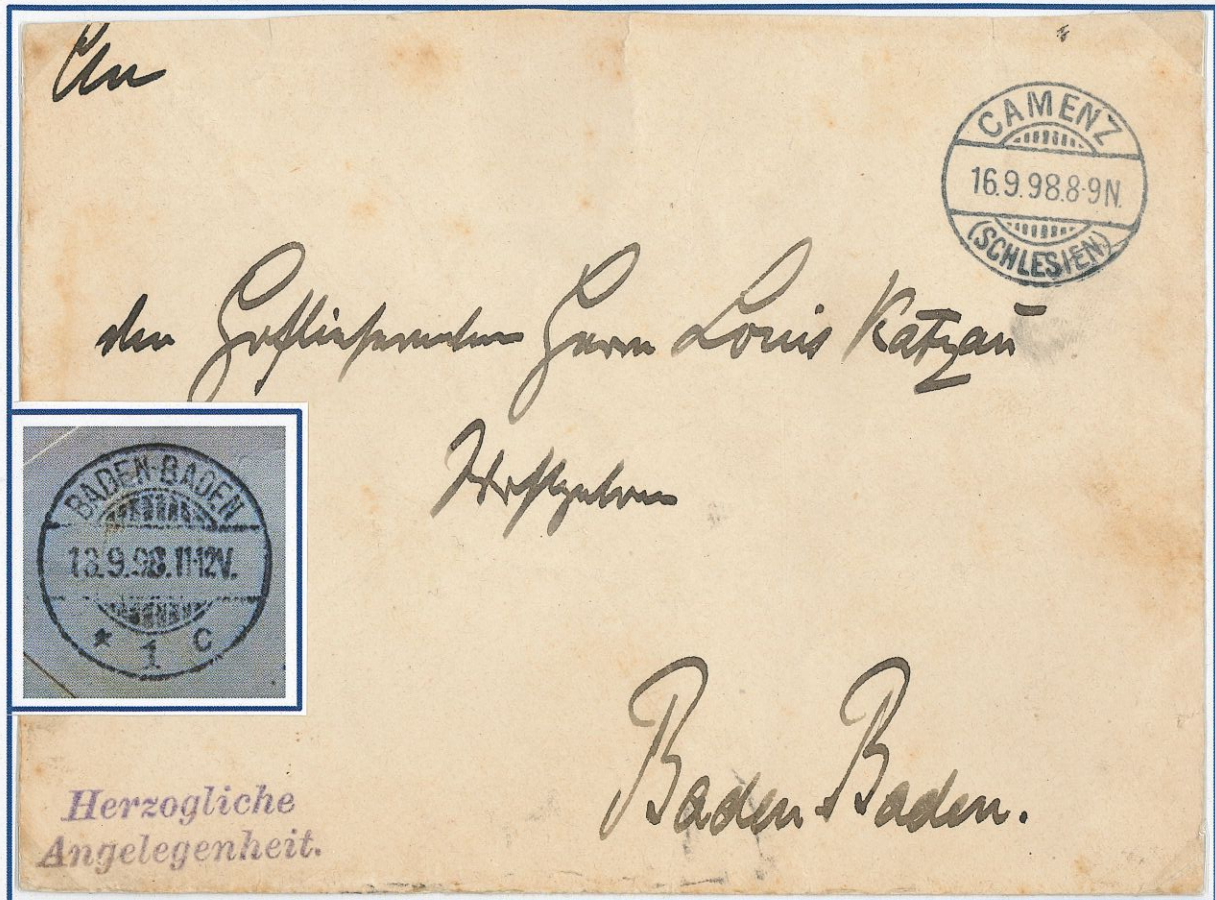 An
CAMENZ
16.9.98.8-9N.
(SCHLESIEN)
den Hoflieferanten Herrn Louis Katzau
BADEN-BADEN
18.9.98.11-12V.
* 1 c
Baden-Baden.
Herzogliche
Angelegenheit.